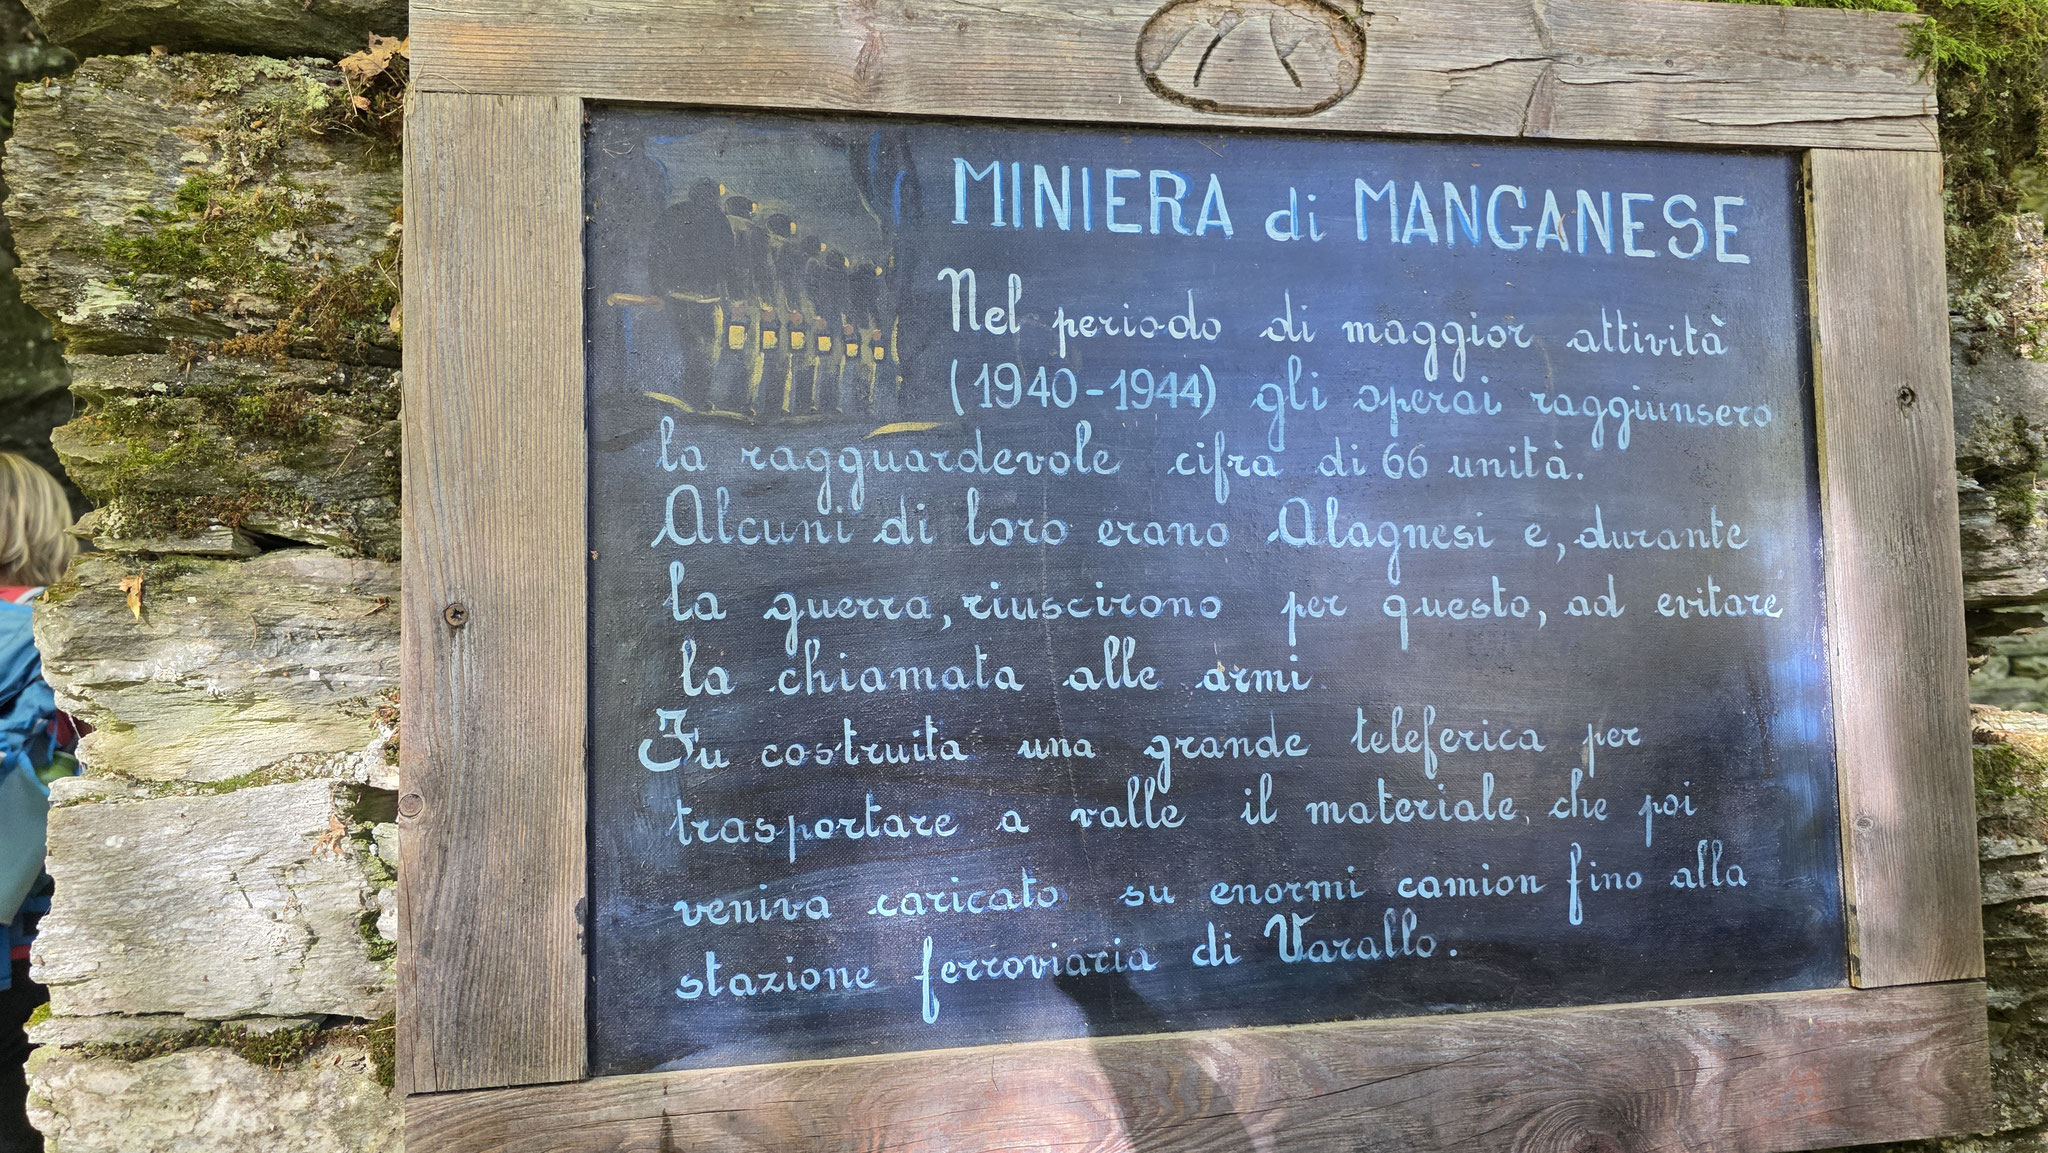 MINIERA di MANGANESE
Nel periodo di maggior attività
(1940-1944) gli operai raggiunsero
la ragguardevole cifra di 66 unità.
Alcuni di loro erano Alagnesi e, durante
la guerra, riuscirono per questo, ad evitare
la chiamata alle armi.
Fu costruita una grande teleferica per
trasportare a valle il materiale, che poi
veniva caricato su enormi camion fino alla
stazione ferroviaria di Varallo.